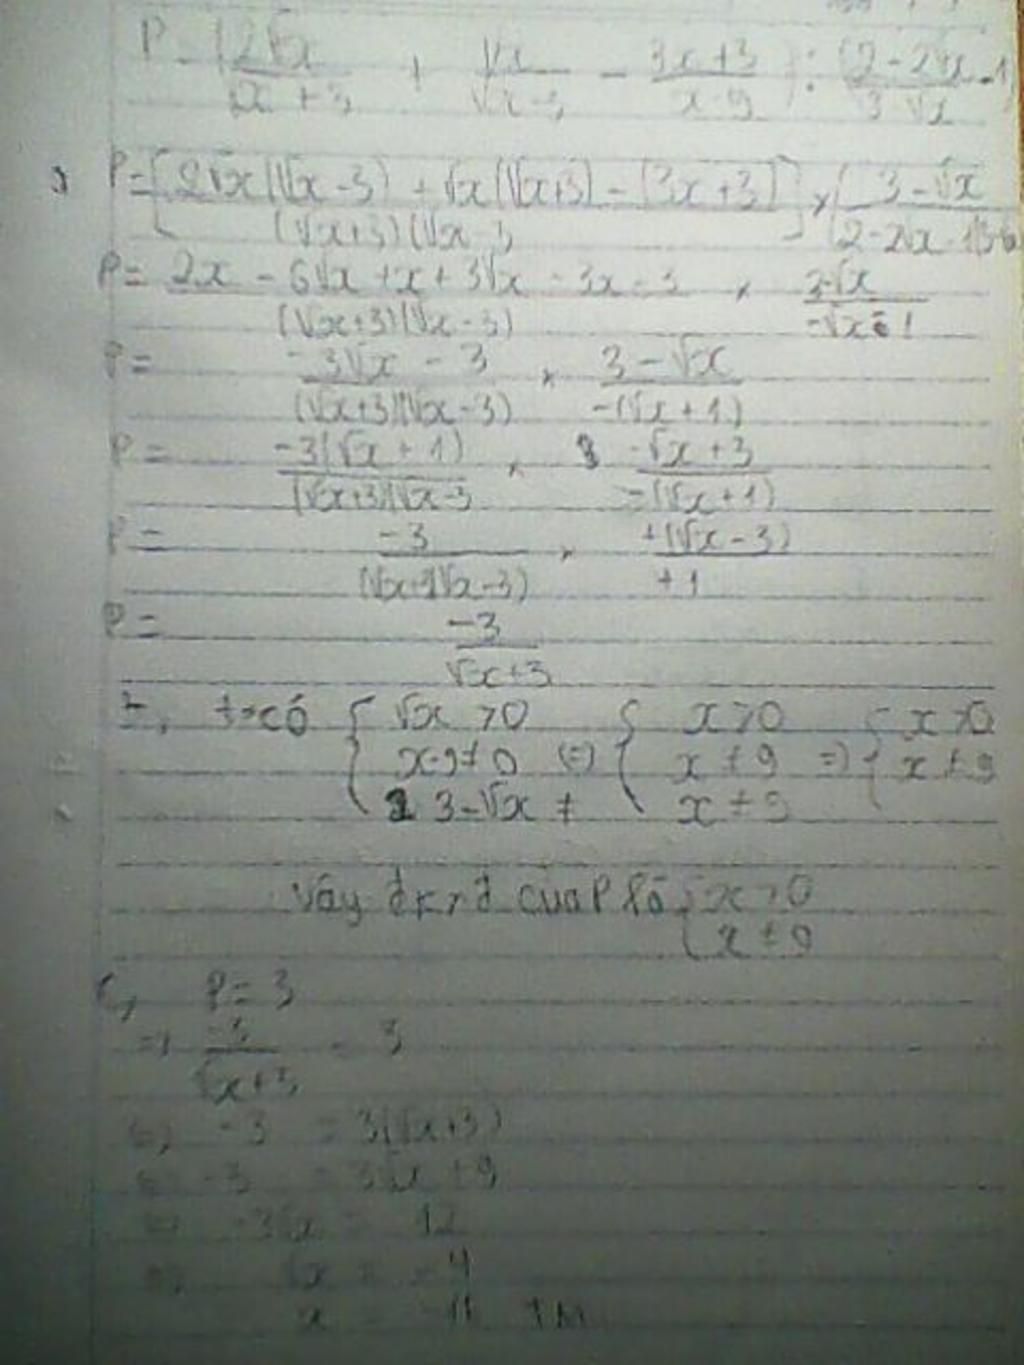 P = (2√x / √x + 3 + √x / √x - 3 - 3x + 3 / x - 9) : (2 - 2√x / 3 √x - 1)
P = [2√x(√x - 3) + √x(√x + 3) - (3x + 3) / (√x + 3)(√x - 3] × (3 - √x / 2 - 2√x
P = 2x - 6√x + x + 3√x - 3x - 3 / (√x + 3)(√x - 3) ×
P = -3√x - 3 / (√x + 3)(√x - 3) × 3 - √x / -(√x + 1)
P = -3(√x + 1) / (√x + 3)(√x - 3 × -√x + 3 / -(√x + 1)
P = -3 / (√x+3)(√x - 3) × +(√x - 3) / +1
P = -3 / √x + 3
ta có { √x > 0 { x > 0 { x > 0
x - 9 ≠ 0 (=) x ≠ 9 =) x ≠ 9
3 - √x ≠ x ≠ 9
Vậy đkxđ của P là { x > 0
x ≠ 9
c, P = 3
=) -3 / √x + 3 = 3
(=) -3 = 3(√x + 3)
(=) -3 = 3√x + 9
(=) -3√x = 12
(=) √x = -4